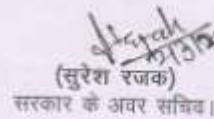 (सुरेश रजक)
सरकार के अवर सचिव।